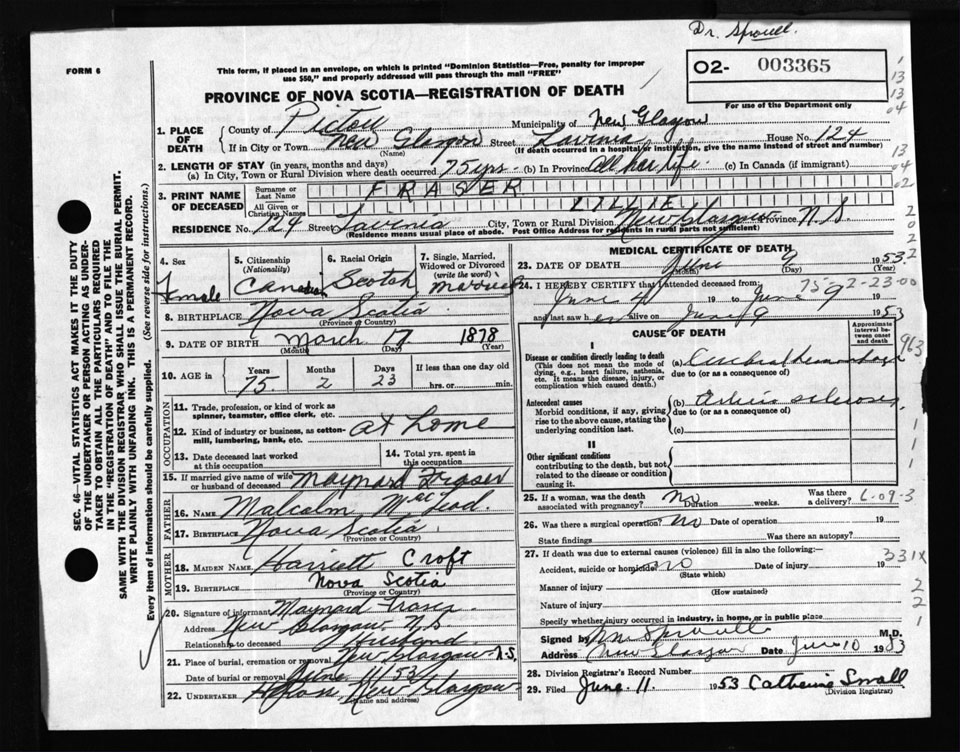 Dr. Sproull.
FORM 6
This form, if placed in an envelope, on which is printed "Dominion Statistics—Free, penalty for improper
use $50," and properly addressed will pass through the mail "FREE"
O2- 003365
For use of the Department only
PROVINCE OF NOVA SCOTIA—REGISTRATION OF DEATH
1. PLACE OF DEATH County of Pictou Municipality of New Glasgow
If in City or Town New Glasgow Street Lavinia House No. 124
(Name) (If death occurred in a hospital or institution, give the name instead of street and number)
2. LENGTH OF STAY (in years, months and days)
a) In City, Town or Rural Division where death occurred 75 yrs. (b) In Province All her life. (c) In Canada (if immigrant)
3. PRINT NAME OF DECEASED Surname or Last Name FRASER
All Given or Christian Names LILLIE
RESIDENCE No. 124 Street Lavinia City, Town or Rural Division New Glasgow Province N.S.
(Residence means usual place of abode. Post Office Address for residents in rural parts not sufficient)
4. Sex Female
5. Citizenship (Nationality) Canadian
6. Racial Origin Scotch
7. Single, Married, Widowed or Divorced (write the word) Married
8. BIRTHPLACE Nova Scotia
(Province or Country)
9. DATE OF BIRTH March 17 1878
(Month) (Day) (Year)
10. AGE in Years 75 Months 2 Days 23 If less than one day old
hrs. or min.
OCCUPATION
11. Trade, profession, or kind of work as spinner, teamster, office clerk, etc.
12. Kind of industry or business, as cotton-mill, lumbering, bank, etc. at Home
13. Date deceased last worked at this occupation
14. Total yrs. spent in this occupation
15. If married give name of wife or husband of deceased Maynard Fraser
FATHER
16. NAME Malcolm McLeod.
17. BIRTHPLACE Nova Scotia.
(Province or Country)
MOTHER
18. MAIDEN NAME Harriett Croft
19. BIRTHPLACE Nova Scotia
(Province or Country)
20. Signature of informant Maynard Fraser
Address New Glasgow N.S.
Relationship to deceased Husband
21. Place of burial, cremation or removal New Glasgow N.S.
Date of burial or removal June 53
22. UNDERTAKER New Glasgow
(Name and address)
MEDICAL CERTIFICATE OF DEATH
23. DATE OF DEATH June 9 1953
(Month) (Day) (Year)
24. I HEREBY CERTIFY that I attended deceased from:
June 4 19 to June 9 1953
and last saw her alive on June 9
CAUSE OF DEATH
Approximate interval between onset and death
I
Disease or condition directly leading to death
(This does not mean the mode of dying, e.g., heart failure, asthenia, etc. It means the disease, injury, or complication which caused death.)
(a) Cerebral hemorrhage
due to (or as a consequence of)
Antecedent causes
Morbid conditions, if any, giving rise to the above cause, stating the underlying condition last.
(b) Arterio sclerosis
due to (or as a consequence of)
(c)
II
Other significant conditions
contributing to the death, but not related to the disease or condition causing it.
25. If a woman, was the death associated with pregnancy? No Duration weeks. Was there a delivery?
26. Was there a surgical operation? no Date of operation 19
State findings Was there an autopsy?
27. If death was due to external causes (violence) fill in also the following:
Accident, suicide or homicide? no 19
(State which)
Manner of injury
(How sustained)
Nature of injury
Specify whether injury occurred in industry, in home, or in public place
Signed by Sproull M.D.
Address New Glasgow Date June 10 1953
28. Division Registrar's Record Number
29. Filed June. 11. 1953 Catherine Small
(Division Registrar)
SEC. 46—VITAL STATISTICS ACT MAKES IT THE DUTY
OF THE UNDERTAKER OR PERSON ACTING AS UNDER-
TAKER TO OBTAIN ALL THE PARTICULARS REQUIRED
IN THE "REGISTRATION OF DEATH" AND TO FILE THE
SAME WITH THE DIVISION REGISTRAR WHO SHALL ISSUE THE BURIAL PERMIT.
WRITE PLAINLY WITH UNFADING INK. THIS IS A PERMANENT RECORD.
Every item of information should be carefully supplied. (See reverse side for instructions.)
1
13
13
04
13
04
02
2
0
2
2
75 92-23-00
963
1
1
1
1
6-09-3
331X
2
2
1